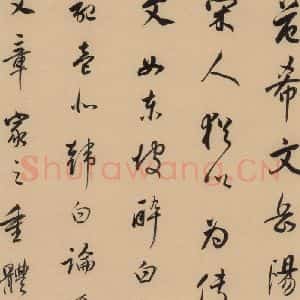 范希文岳陽
宋人猶以為傳
文如東坡醉白
壹似韓白論
文章家之重體
Shufawang.CN